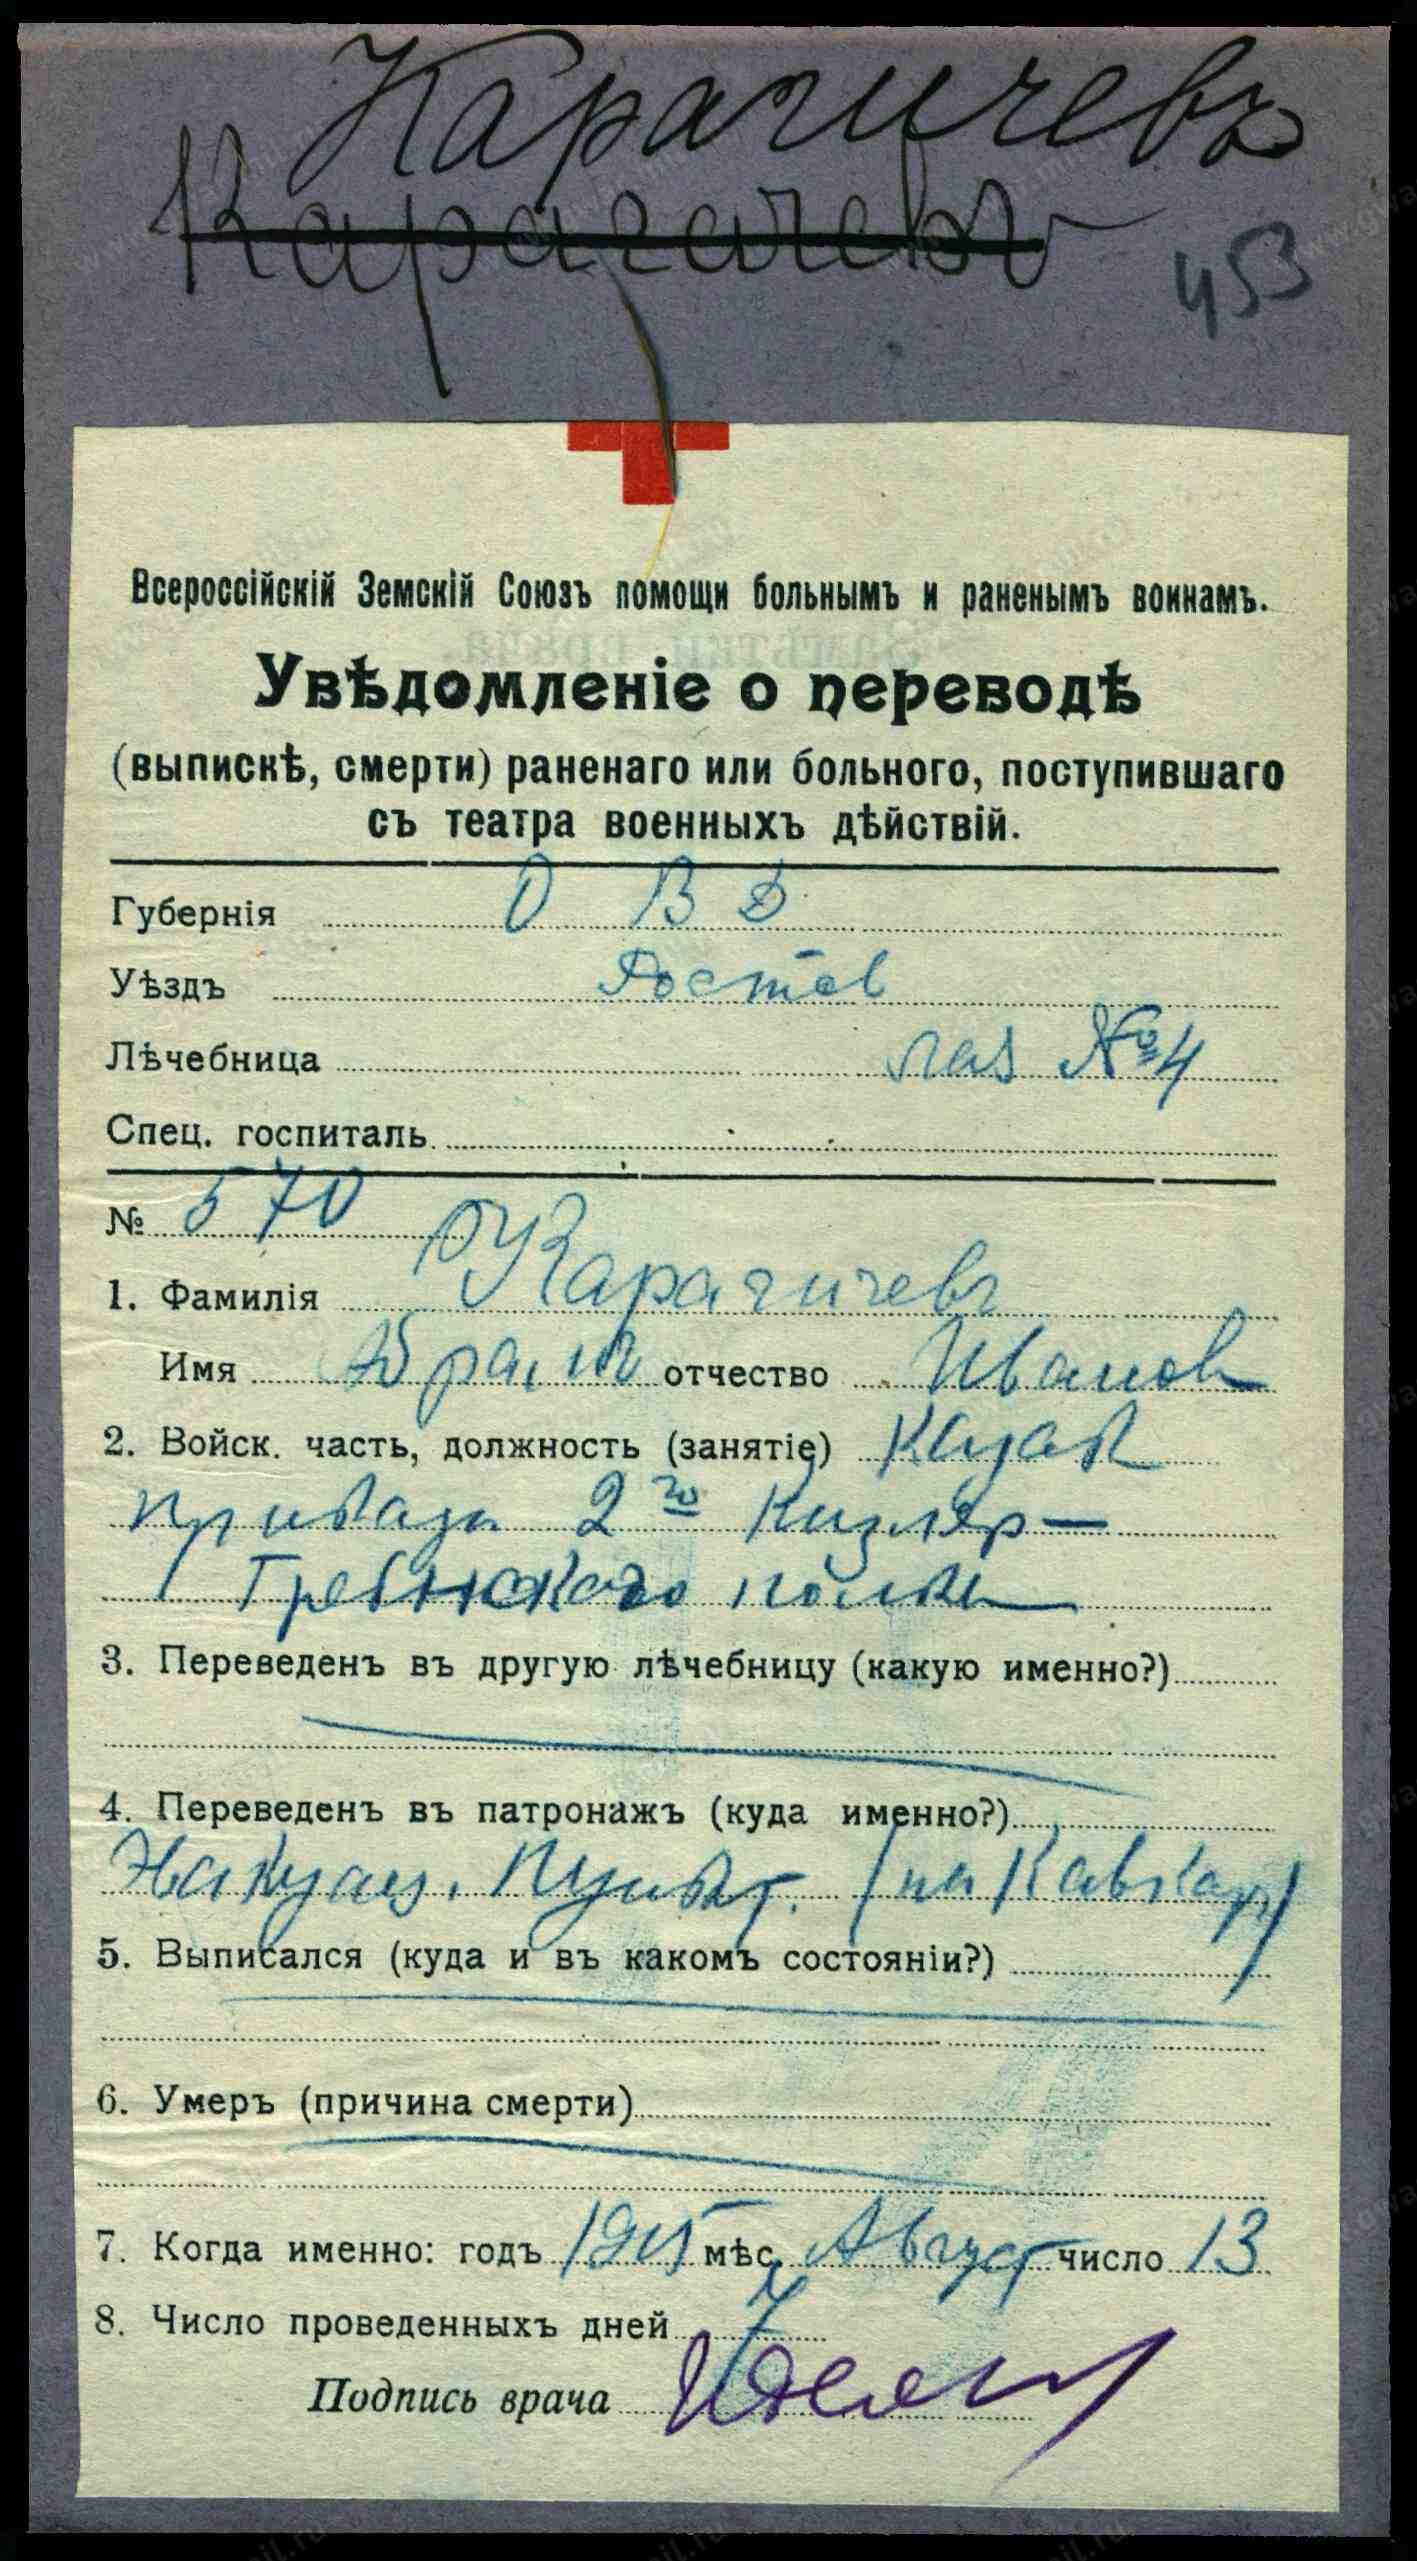 Карагичевъ
Карагачевъ
453
Всероссійскій Земскій Союзъ помощи больнымъ и раненымъ воинамъ.
Увѣдомленіе о переводѣ
(выпискѣ, смерти) раненаго или больного, поступившаго
съ театра военныхъ дѣйствій.
Губернія О В Д
Уѣздъ Ростов
Лѣчебница лаз №4
Спец. госпиталь
№ 570
1. Фамилія Карагичевъ
Имя Абрам отчество Иванов
2. Войск. часть, должность (занятіе) Казак
приказн 2го Кизляр-
Гребнского полка
3. Переведенъ въ другую лѣчебницу (какую именно?)
4. Переведенъ въ патронажъ (куда именно?)
Эвакуац. Пункт. (на Кавказ)
5. Выписался (куда и въ какомъ состояніи?)
6. Умеръ (причина смерти)
7. Когда именно: годъ 1915 мѣс. Август число 13
8. Число проведенныхъ дней 7
Подпись врача